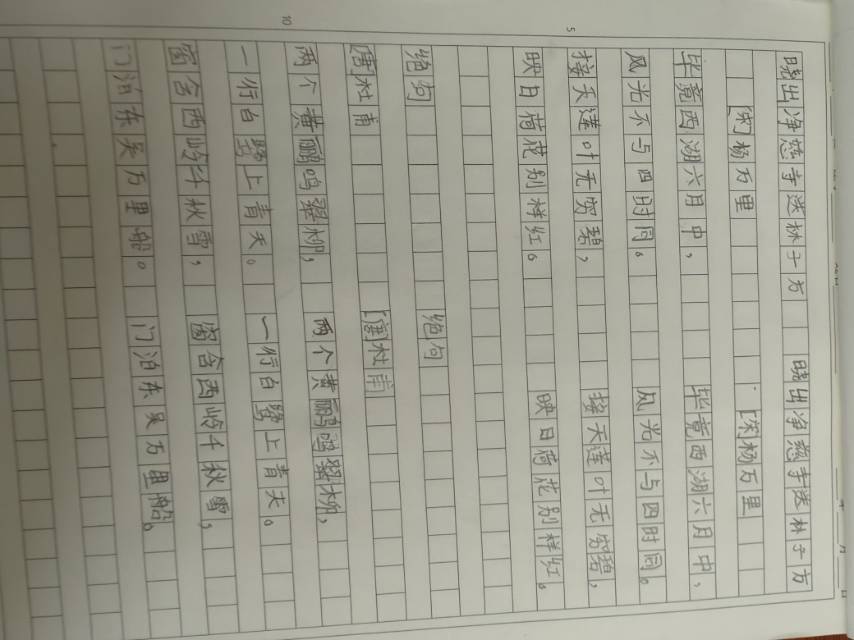 晓出净慈寺送林子方 晓出净慈寺送林子方
[宋]杨万里 [宋]杨万里
毕竟西湖六月中， 毕竟西湖六月中，
风光不与四时同。 风光不与四时同。
接天莲叶无穷碧， 接天莲叶无穷碧，
映日荷花别样红。 映日荷花别样红。
绝句 绝句
[唐]杜甫 [唐]杜甫
两个黄鹂鸣翠柳， 两个黄鹂鸣翠柳，
一行白鹭上青天。 一行白鹭上青天。
窗含西岭千秋雪， 窗含西岭千秋雪，
门泊东吴万里船。 门泊东吴万里船。
5
10